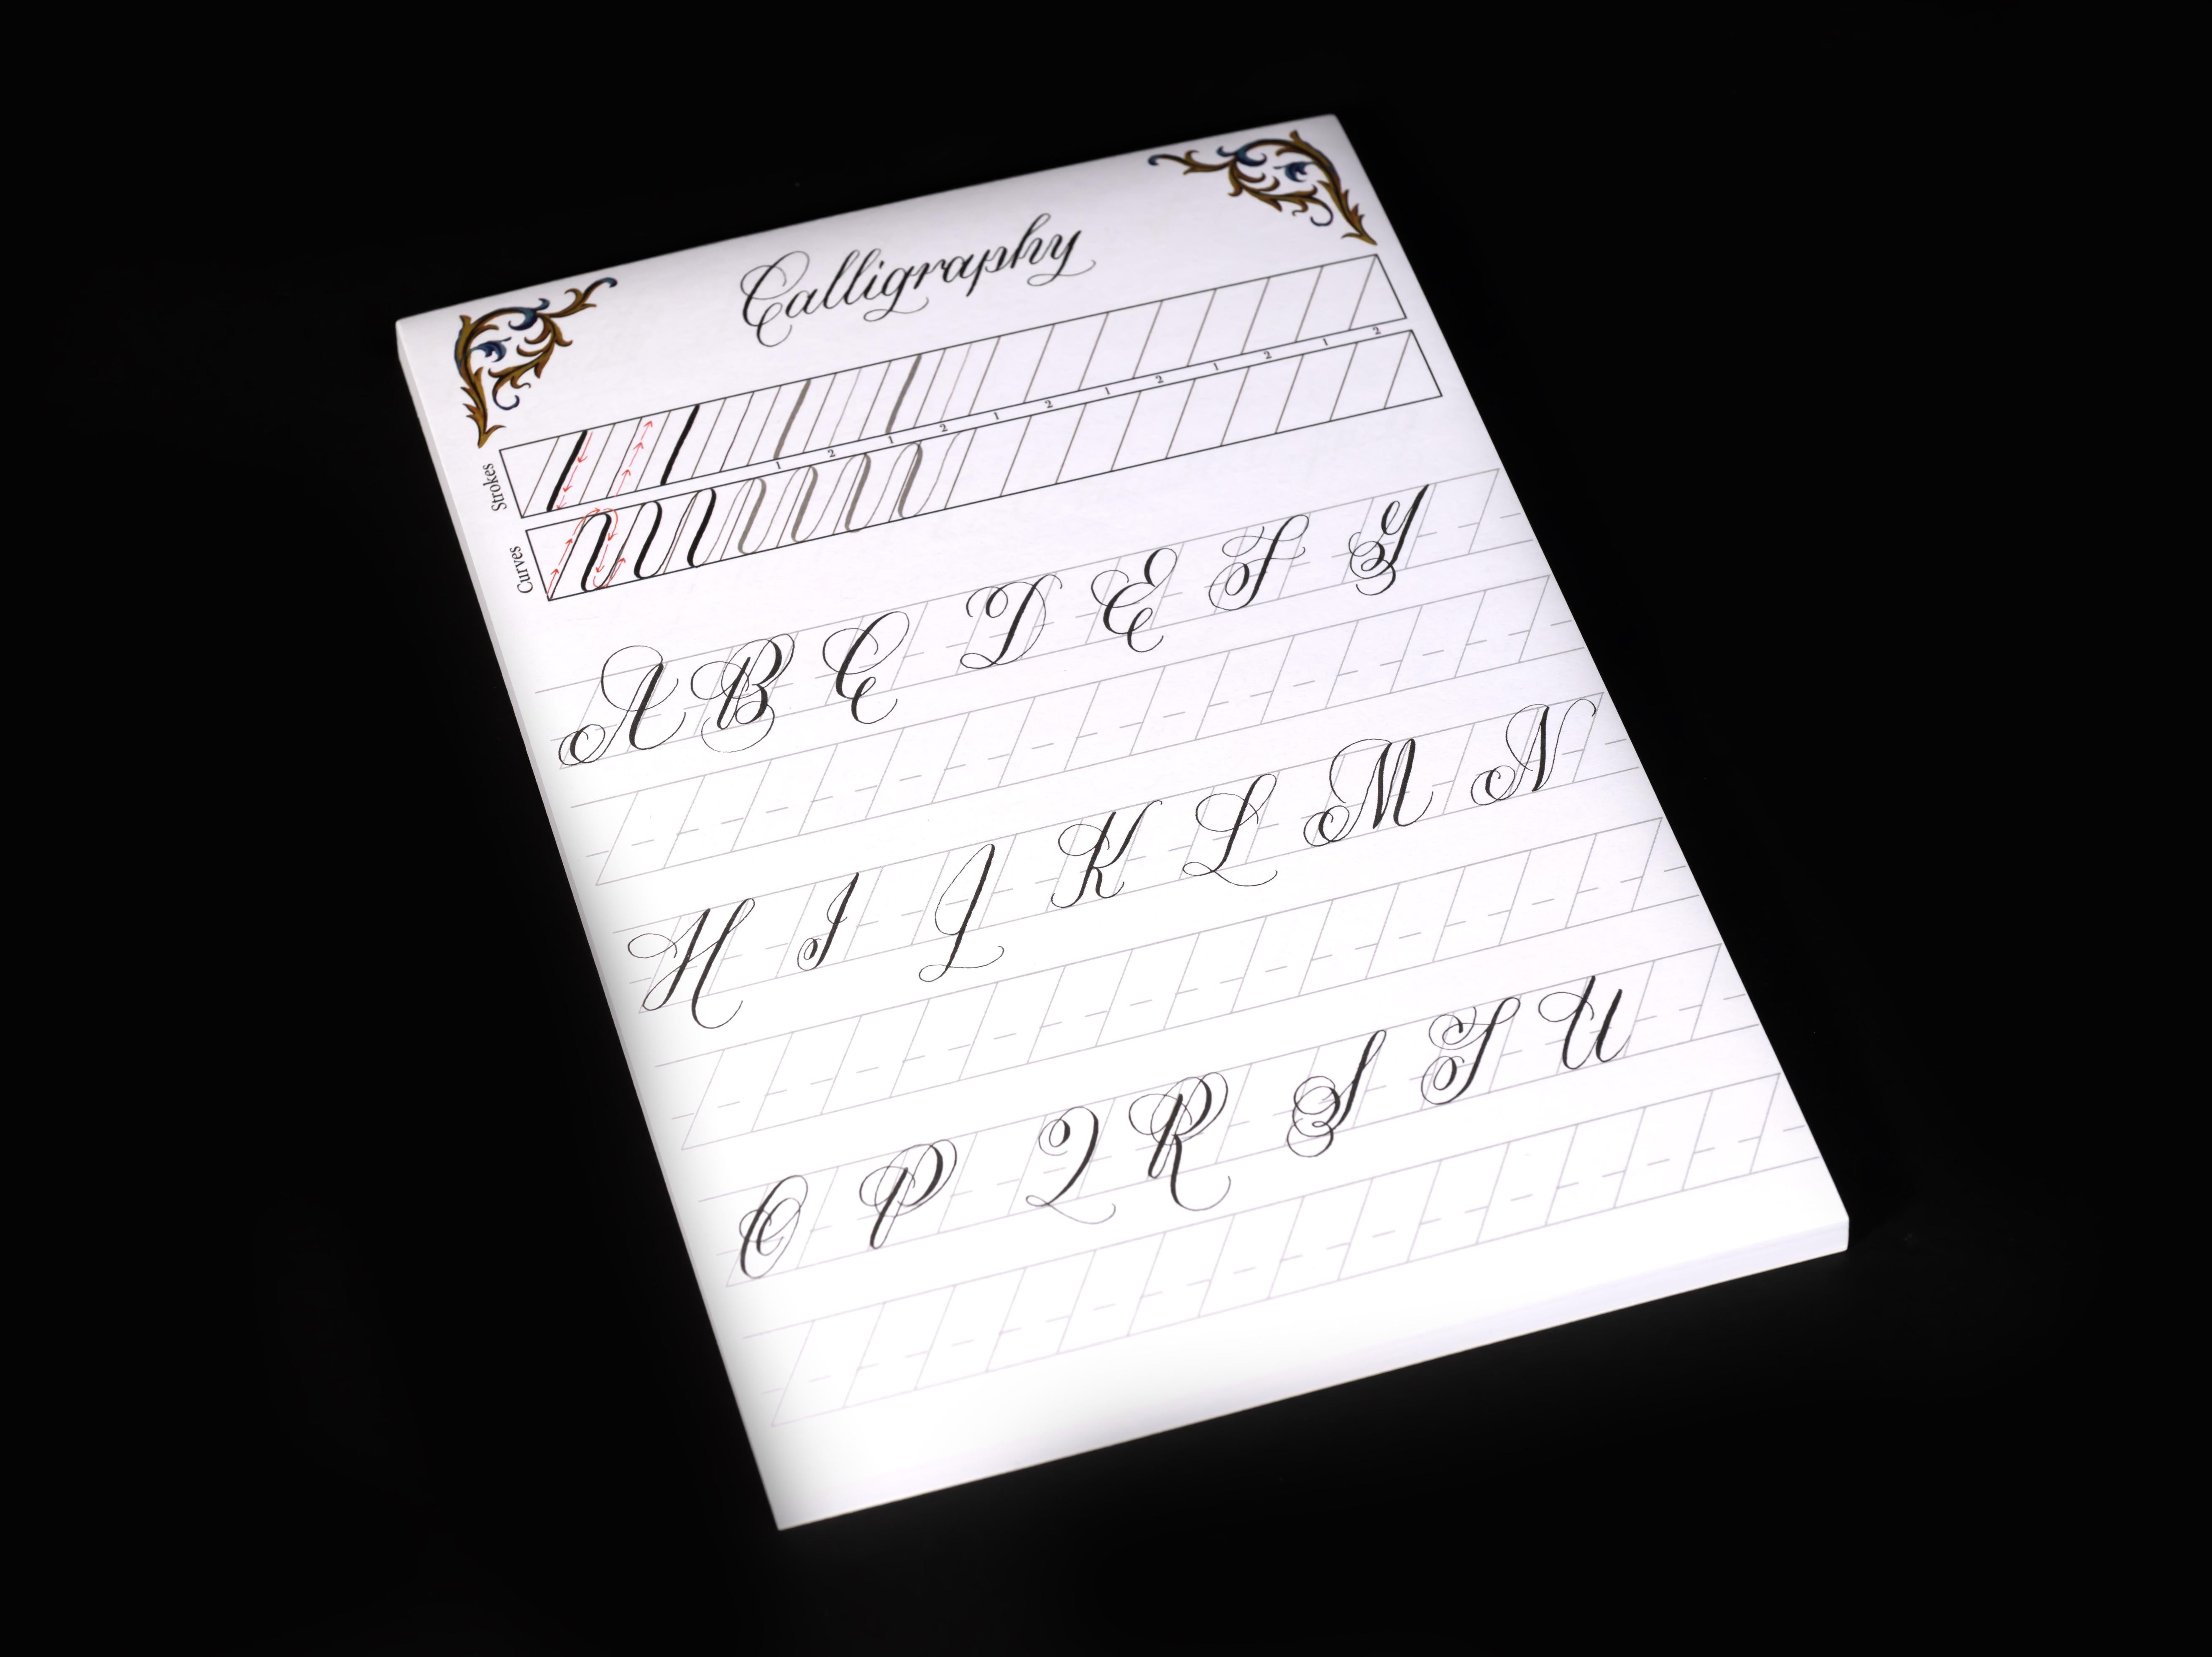 Calligraphy
Strokes
1 2 1 2 1 2 1 2 1 2 1 2
Curves
A B C D E F G
H I J K L M N
O P Q R S T U